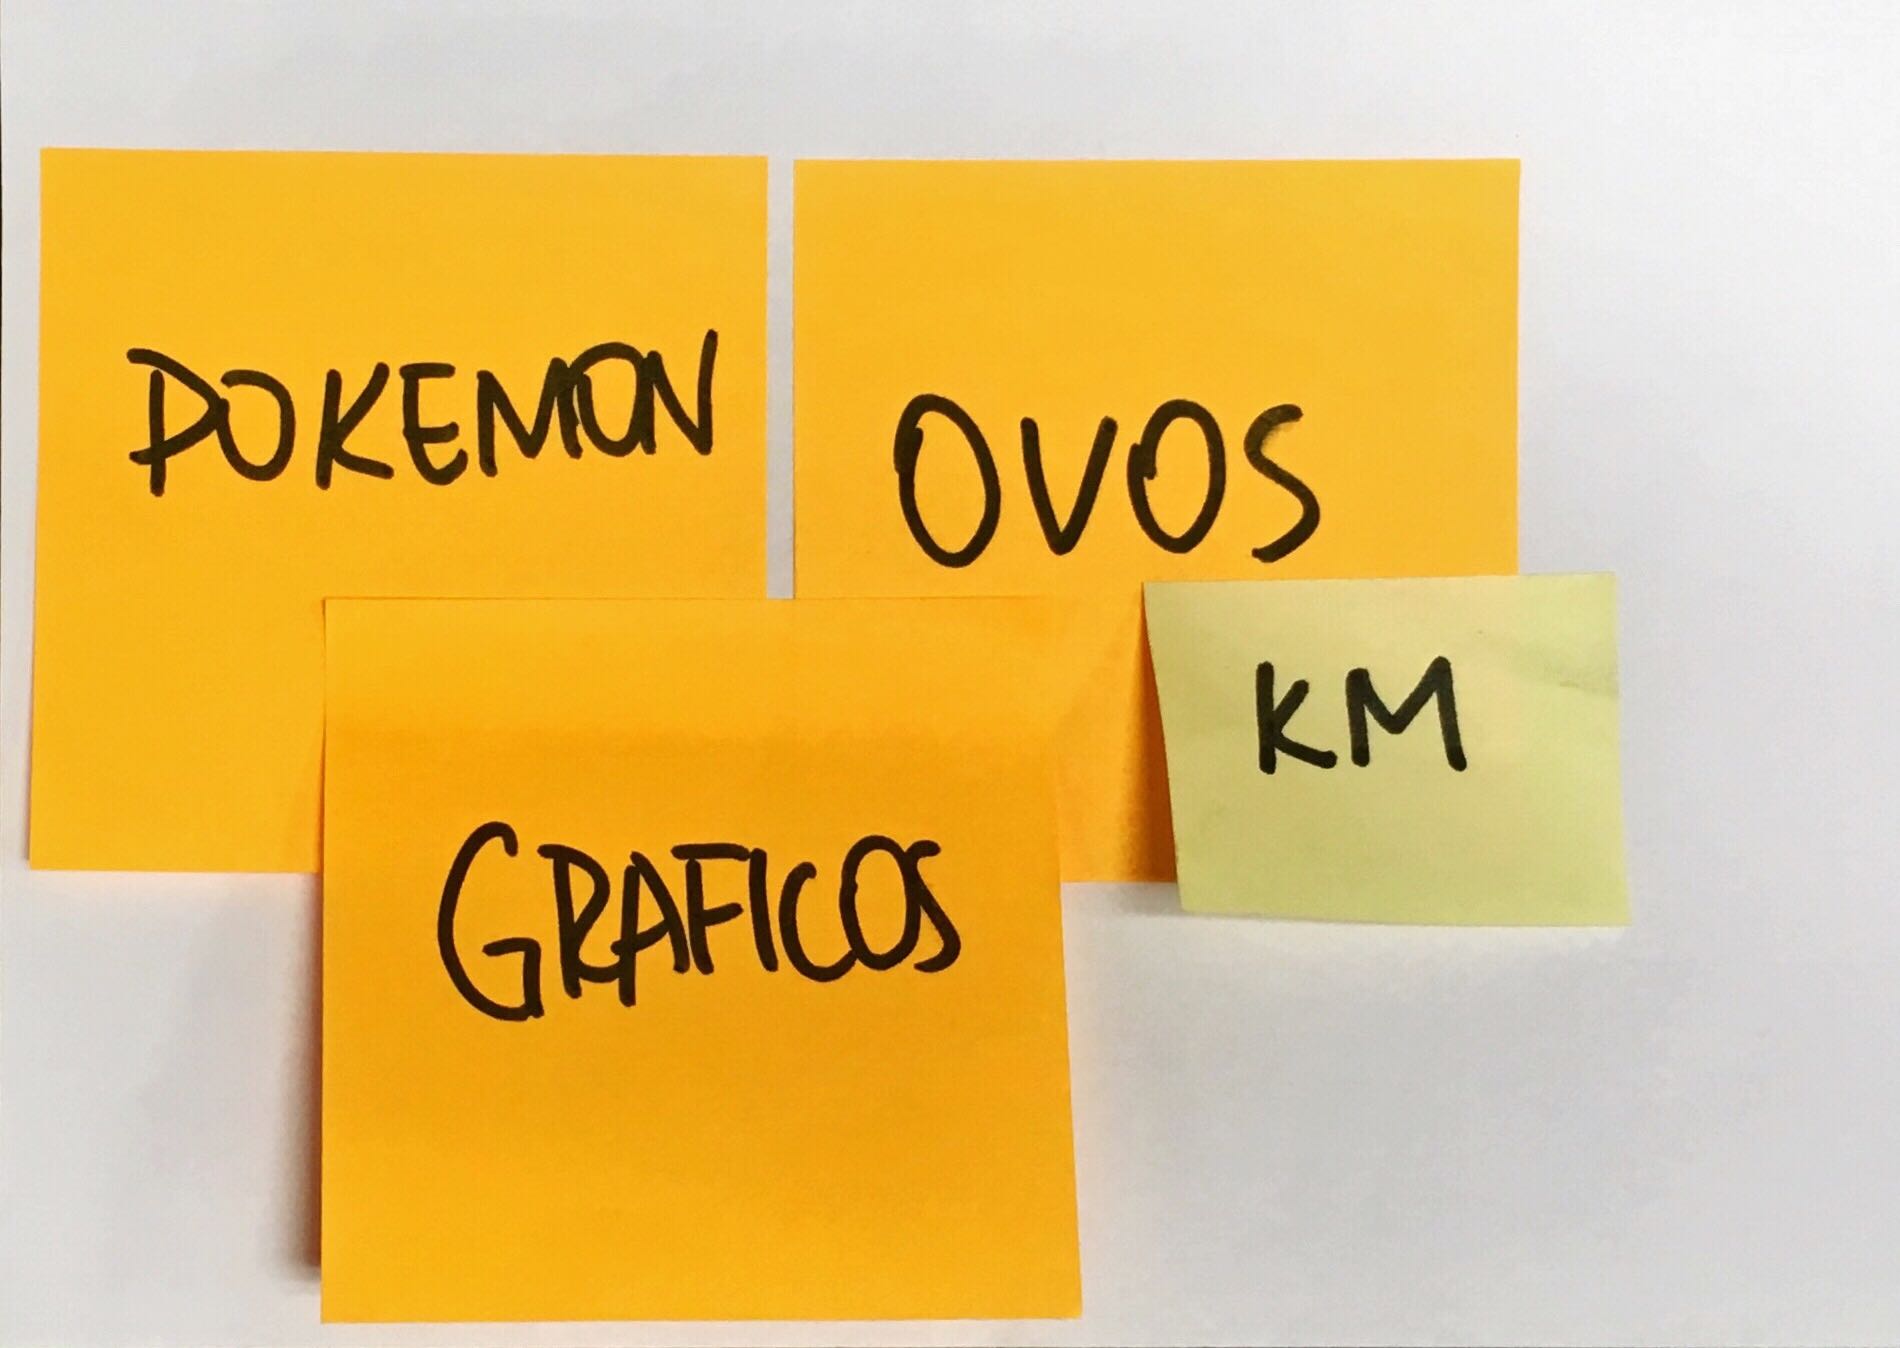 POKEMON
OVOS
KM
GRAFICOS